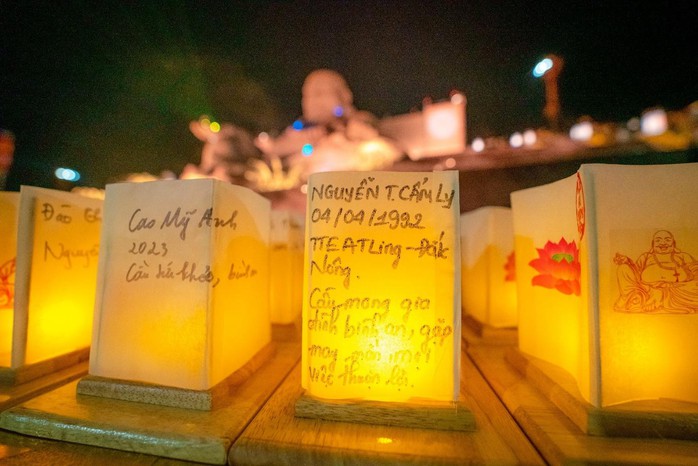 Đào
Nguyễn
Cao Mỹ Anh
2023
Cầu sức khỏe, bình
NGUYỄN T. CẨM LY
04/04/1992
TT EATLing - Đắk
Nông.
Cầu mong gia
đình bình an, gặp
may mắn, mọi
việc thuận lợi.